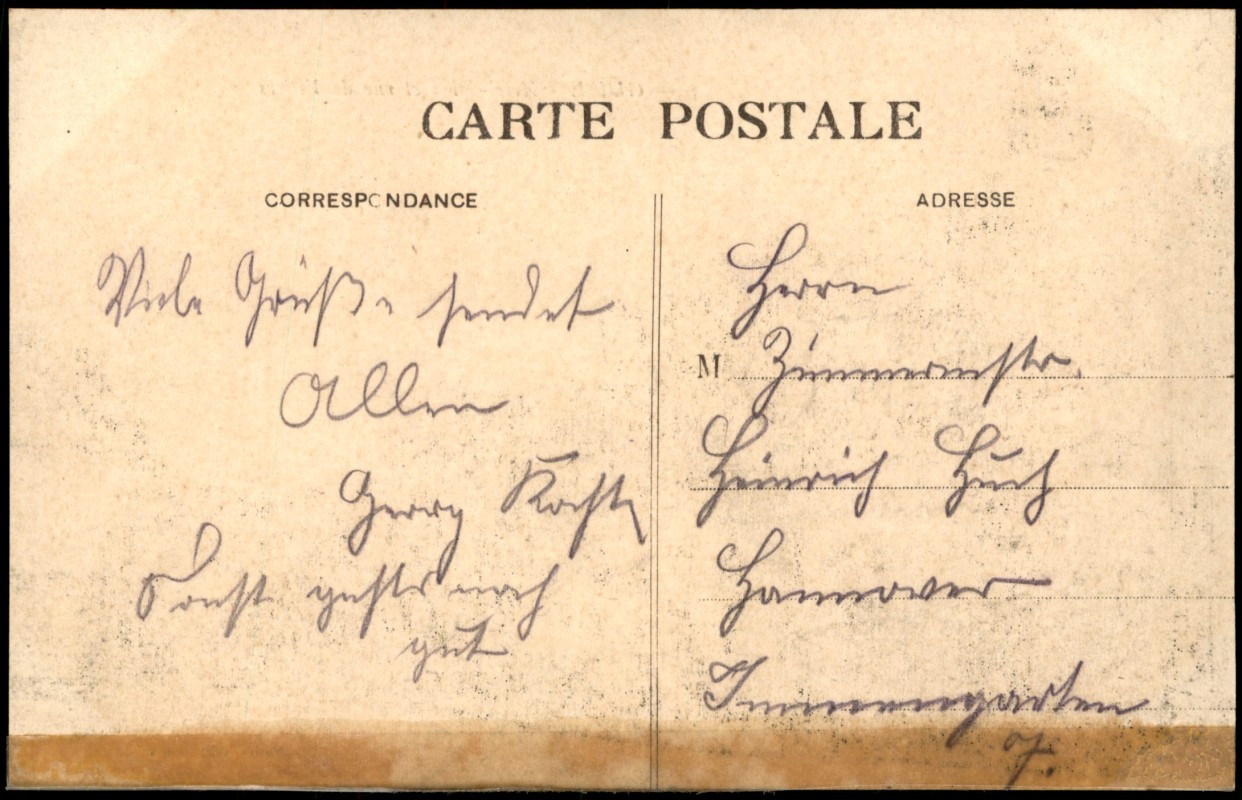 CARTE POSTALE
CORRESPONDANCE
Viele Grüße sendet
Allen
Sonst gehts noch
gut
ADRESSE
Herrn
M Zimmermstr.
Heinrich Huch
Hannover
Immengarten
7.